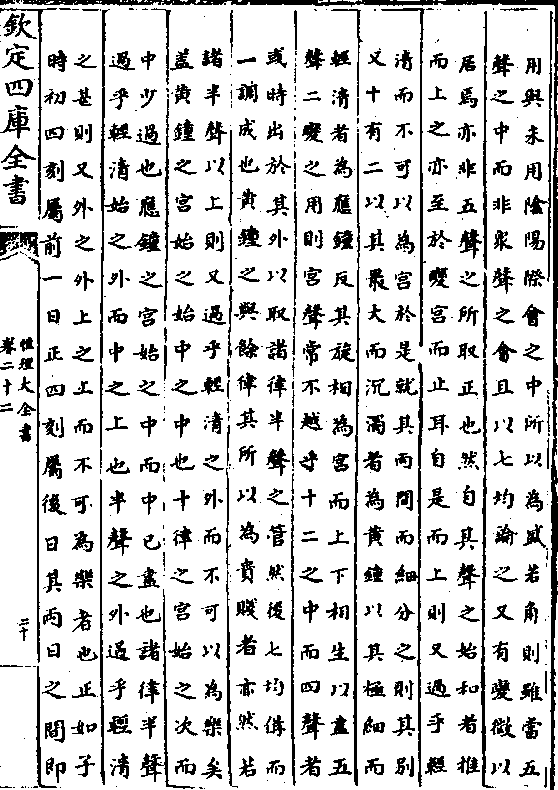 用與未用陰陽際會之中所以為盛若角則雖當五
聲之中而非衆聲之會且以七均論之又有變徵以
居焉亦非五聲之所取正也然自其聲之始和者推
而上之亦至於變宮而止耳自是而上則又過乎輕
清而不可以為宮於是就其兩間而細分之則其別
又十有二以其最大而沉濁者為黄鐘以其極細而
輕清者為應鐘及其旋相為宮而上下相生以盡五
聲二變之用則宮聲常不越乎十二之中而四聲者
或時出於其外以取諸律半聲之管然後七均備而
一調成也黄鐘之與餘律其所以為貴賤者亦然若
諸半聲以上則又過乎輕清之外而不可以為樂矣
盖黄鐘之宮始之始中之中也十律之宮始之次而
中少過也應鐘之宮始之中而中已盡也諸律半聲
過乎輕清始之外而中之上也半聲之外過乎輕清
之甚則又外之外上之上而不可為樂者也正如子
時初四刻屬前一日正四刻屬後日其兩日之間即
欽定四庫全書
性理大全書
卷二十二
二十